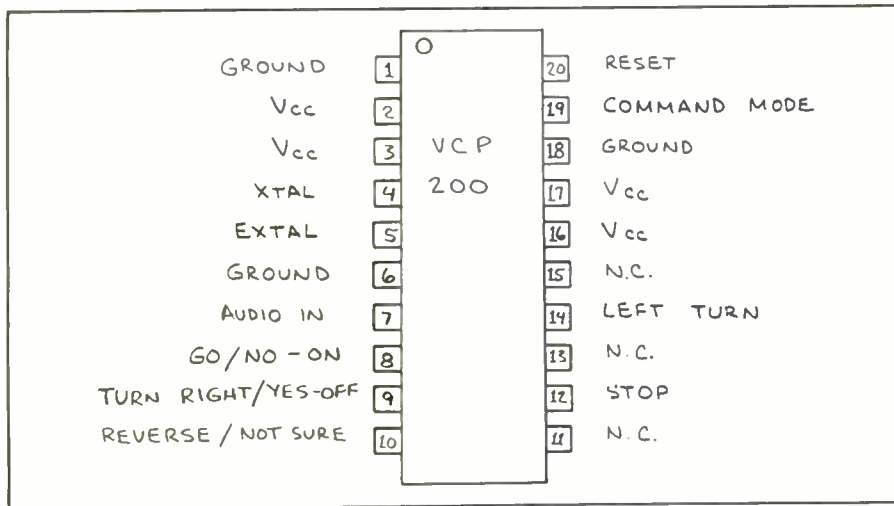 GROUND 1
Vcc 2
Vcc 3
XTAL 4
EXTAL 5
GROUND 6
AUDIO IN 7
GO/NO-ON 8
TURN RIGHT/YES-OFF 9
REVERSE/NOT SURE 10
VCP
200
20 RESET
19 COMMAND MODE
18 GROUND
17 Vcc
16 Vcc
15 N.C.
14 LEFT TURN
13 N.C.
12 STOP
11 N.C.